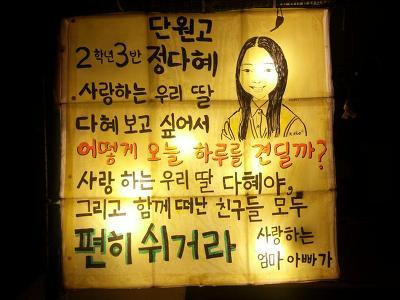 단원고
2학년 3반 정다혜
사랑하는 우리 딸
다혜 보고 싶어서
어떻게 오늘 하루를 견딜까?
사랑하는 우리 딸 다혜야,
그리고 함께 떠난 친구들 모두
편히 쉬거라
사랑하는
엄마 아빠가